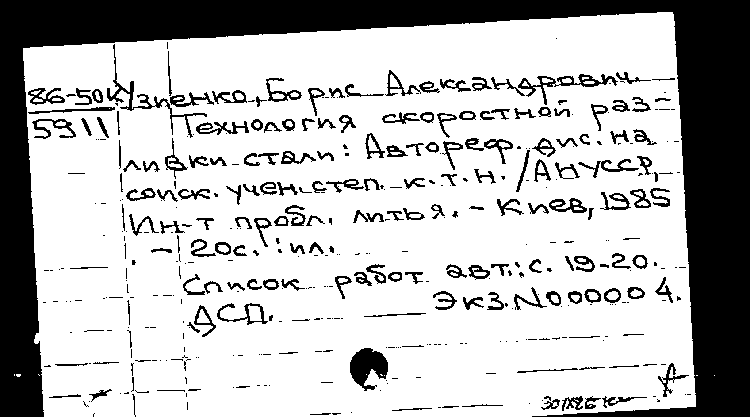 86-50 Кузиенко, Борис Александрович.
5911 Технология скоростной раз-
ливки стали: Автореф. дис. на
соиск. учен. степ. к.т.н. /АН УССР,
Ин-т пробл. литья. - Киев, 1985
. - 20с. : ил.
Список работ авт.: с. 19-20.
ДСП. Экз. N000004.